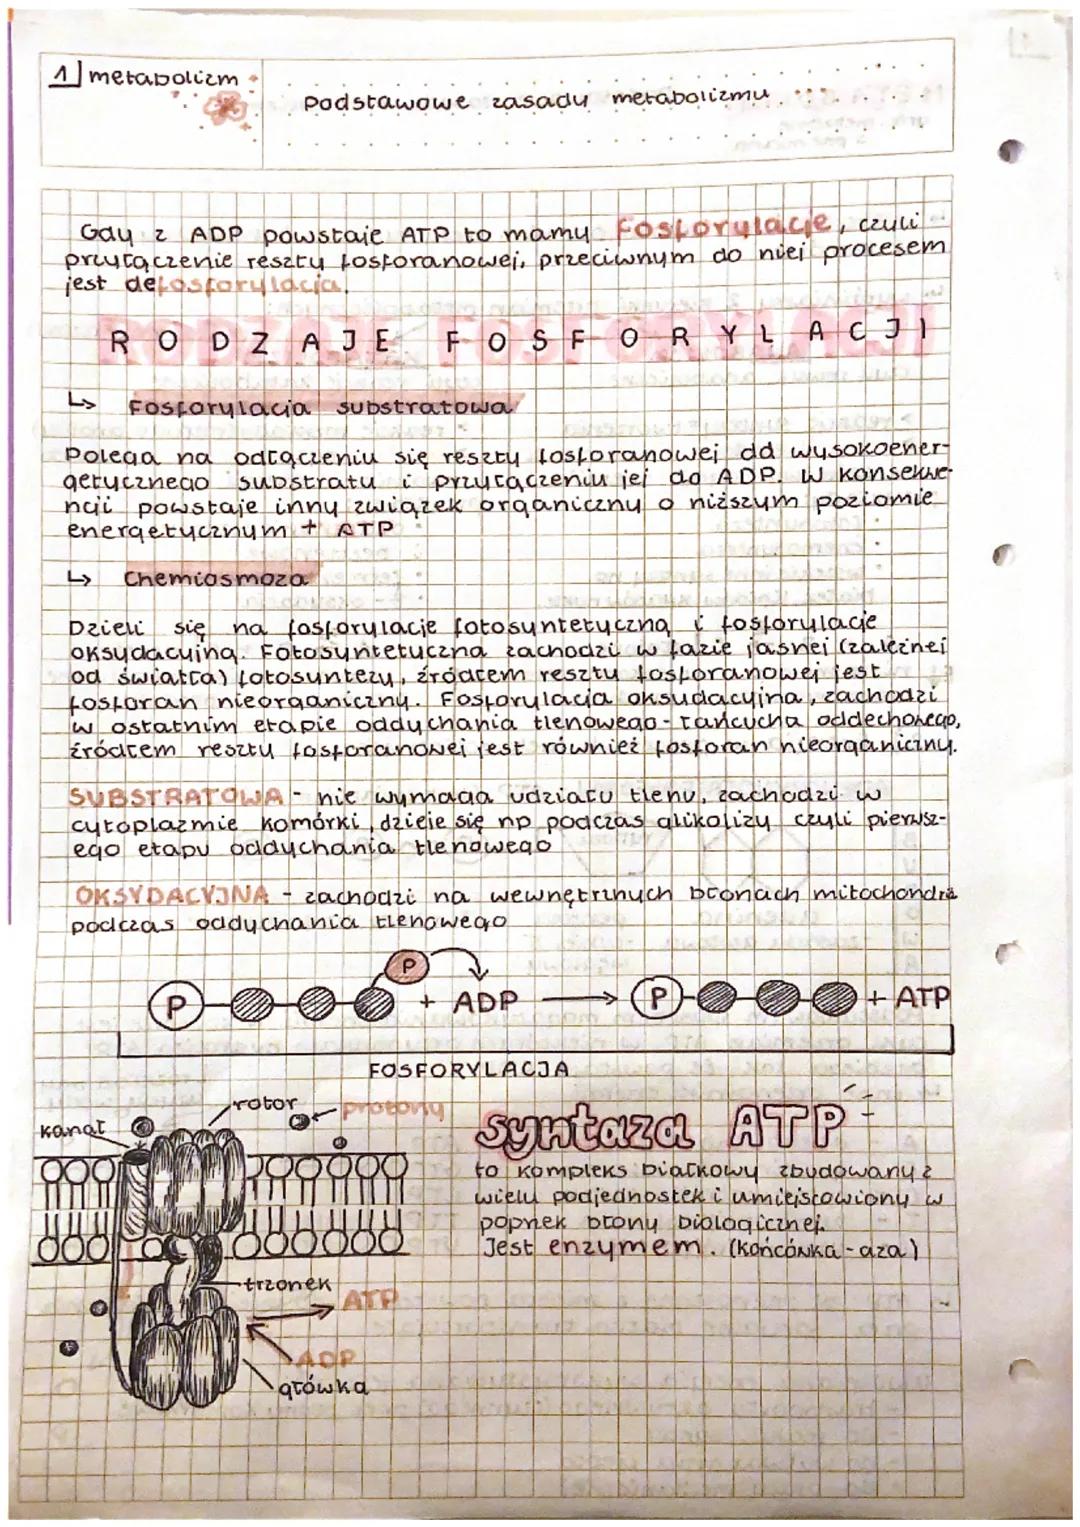 1 metabolizm
Podstawowe zasady metabolizmu
Gdy z ADP powstaje ATP to mamy Fosforylacje, czyli
przyłączenie reszty fosforanowej, przeciwnym do niej procesem
jest defosforylacja.
RODZAJE FOSFORYLACJI
↳ Fosforylacja substratowa
Polega na odłączeniu się reszty fosforanowej dd wysokoener-
getycznego substratu i przyłączeniu jej do ADP. W konsekwe-
ncji powstaje inny związek organiczny o niższym poziomie
energetycznym + ATP
↳ Chemiosmoza
Dzieli się na fosforylacje fotosyntetyczną i fosforylacje
oksydacyjną. Fotosyntetyczna zachodzi w fazie jasnej (zależnej
od światła) fotosyntezy, źródłem reszty fosforanowej jest
fosforan nieorganiczny. Fosforylacja oksydacyjna, zachodzi
w ostatnim etapie oddychania tlenowego - łańcucha oddechowego,
źródłem reszty fosforanowej jest również fosforan nieorganiczny.
SUBSTRATOWA - nie wymaga udziału tlenu, zachodzi w
cytoplazmie komórki, dzieje się np podczas glikolizy czyli pierwsz-
ego etapu oddychania tlenowego
OKSYDACYJNA - zachodzi na wewnętrznych błonach mitochondria
podczas oddychania tlenowego
P
P + ADP → P + ATP
FOSFORYLACJA
rotor
protony
kanał
syntaza ATP
to kompleks białkowy zbudowany z
wielu podjednostek i umiejscowiony w
poprzek błony biologicznej.
Jest enzymem. (końcówka - aza)
trzonek
ATP
ADP
główka